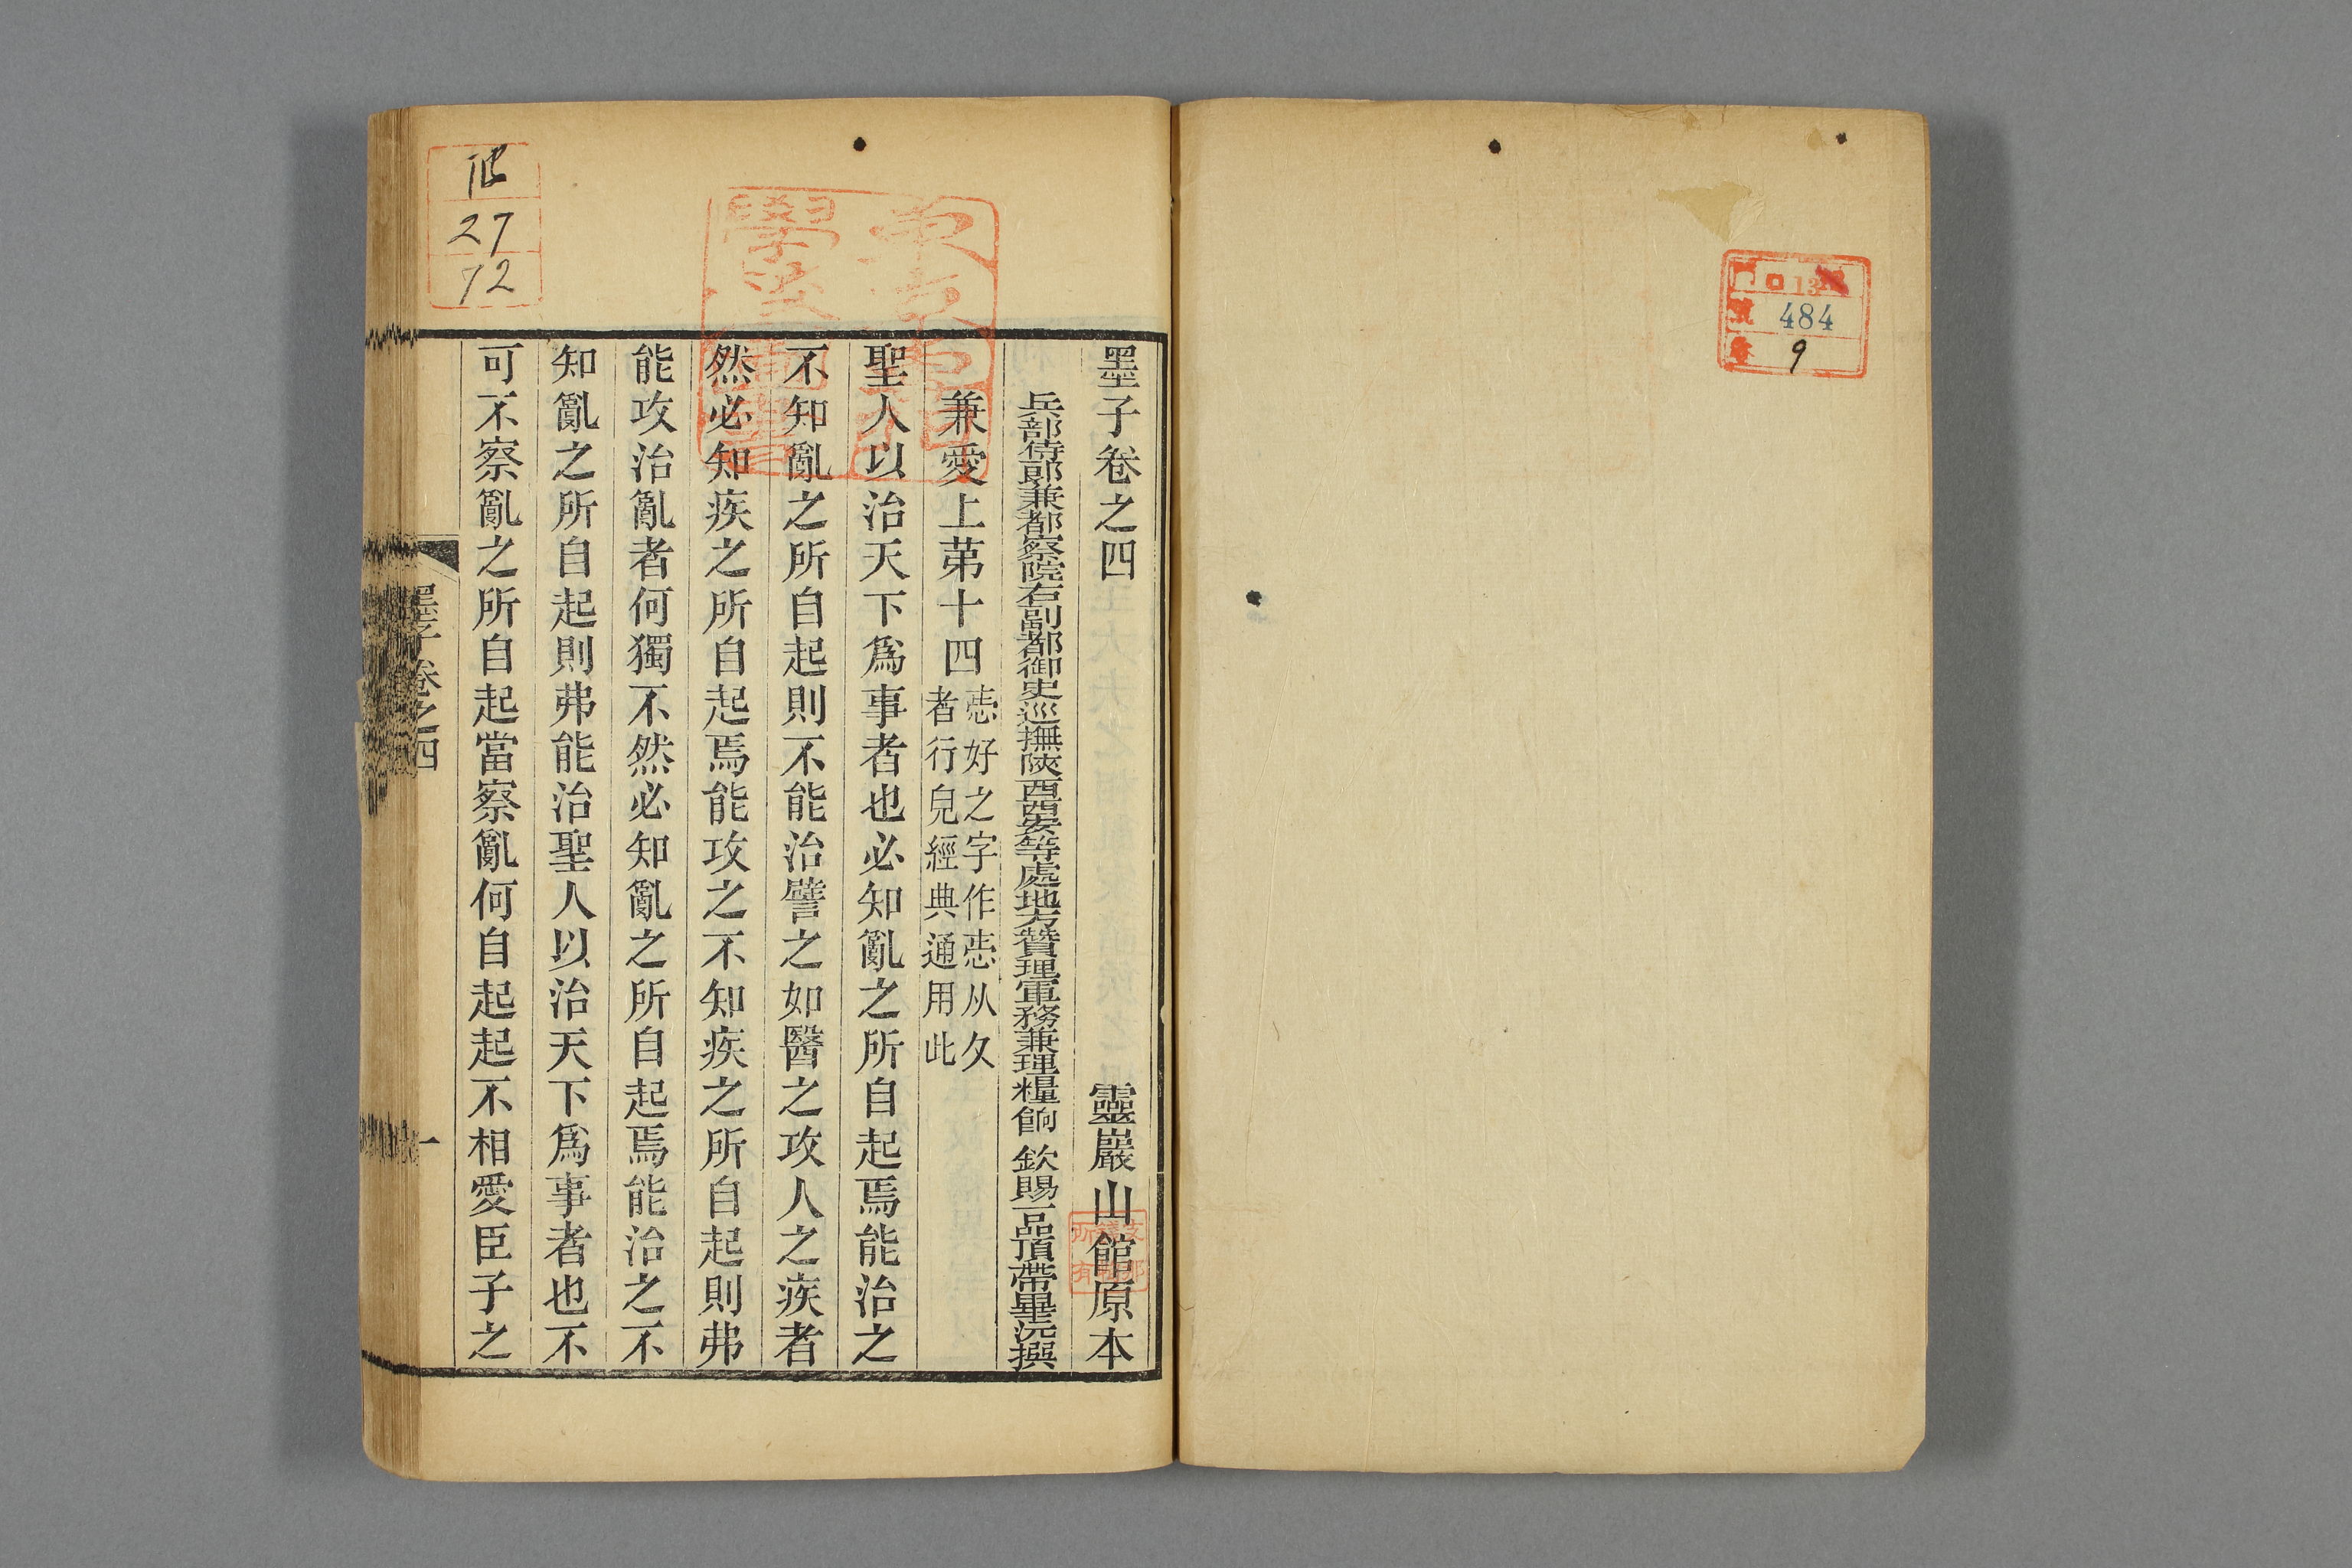 墨子卷之四　靈巖山館原本
兵部侍郎兼都察院右副都御史巡撫陝西西安等處地方贊理軍務兼理糧餉　欽賜一品頂帶畢沅撰
兼愛上苐十四
㤅好之字作㤅从夊
者行皃經典通用此
聖人以治天下爲事者也必知亂之所自起焉能治之
不知亂之所自起則不能治譬之如醫之攻人之疾者
然必知疾之所自起焉能攻之不知疾之所自起則弗
能攻治亂者何獨不然必知亂之所自起焉能治之不
知亂之所自起則弗能治聖人以治天下爲事者也不
可不察亂之所自起當察亂何自起起不相愛臣子之
墨子卷之四
一
27
72
484
9